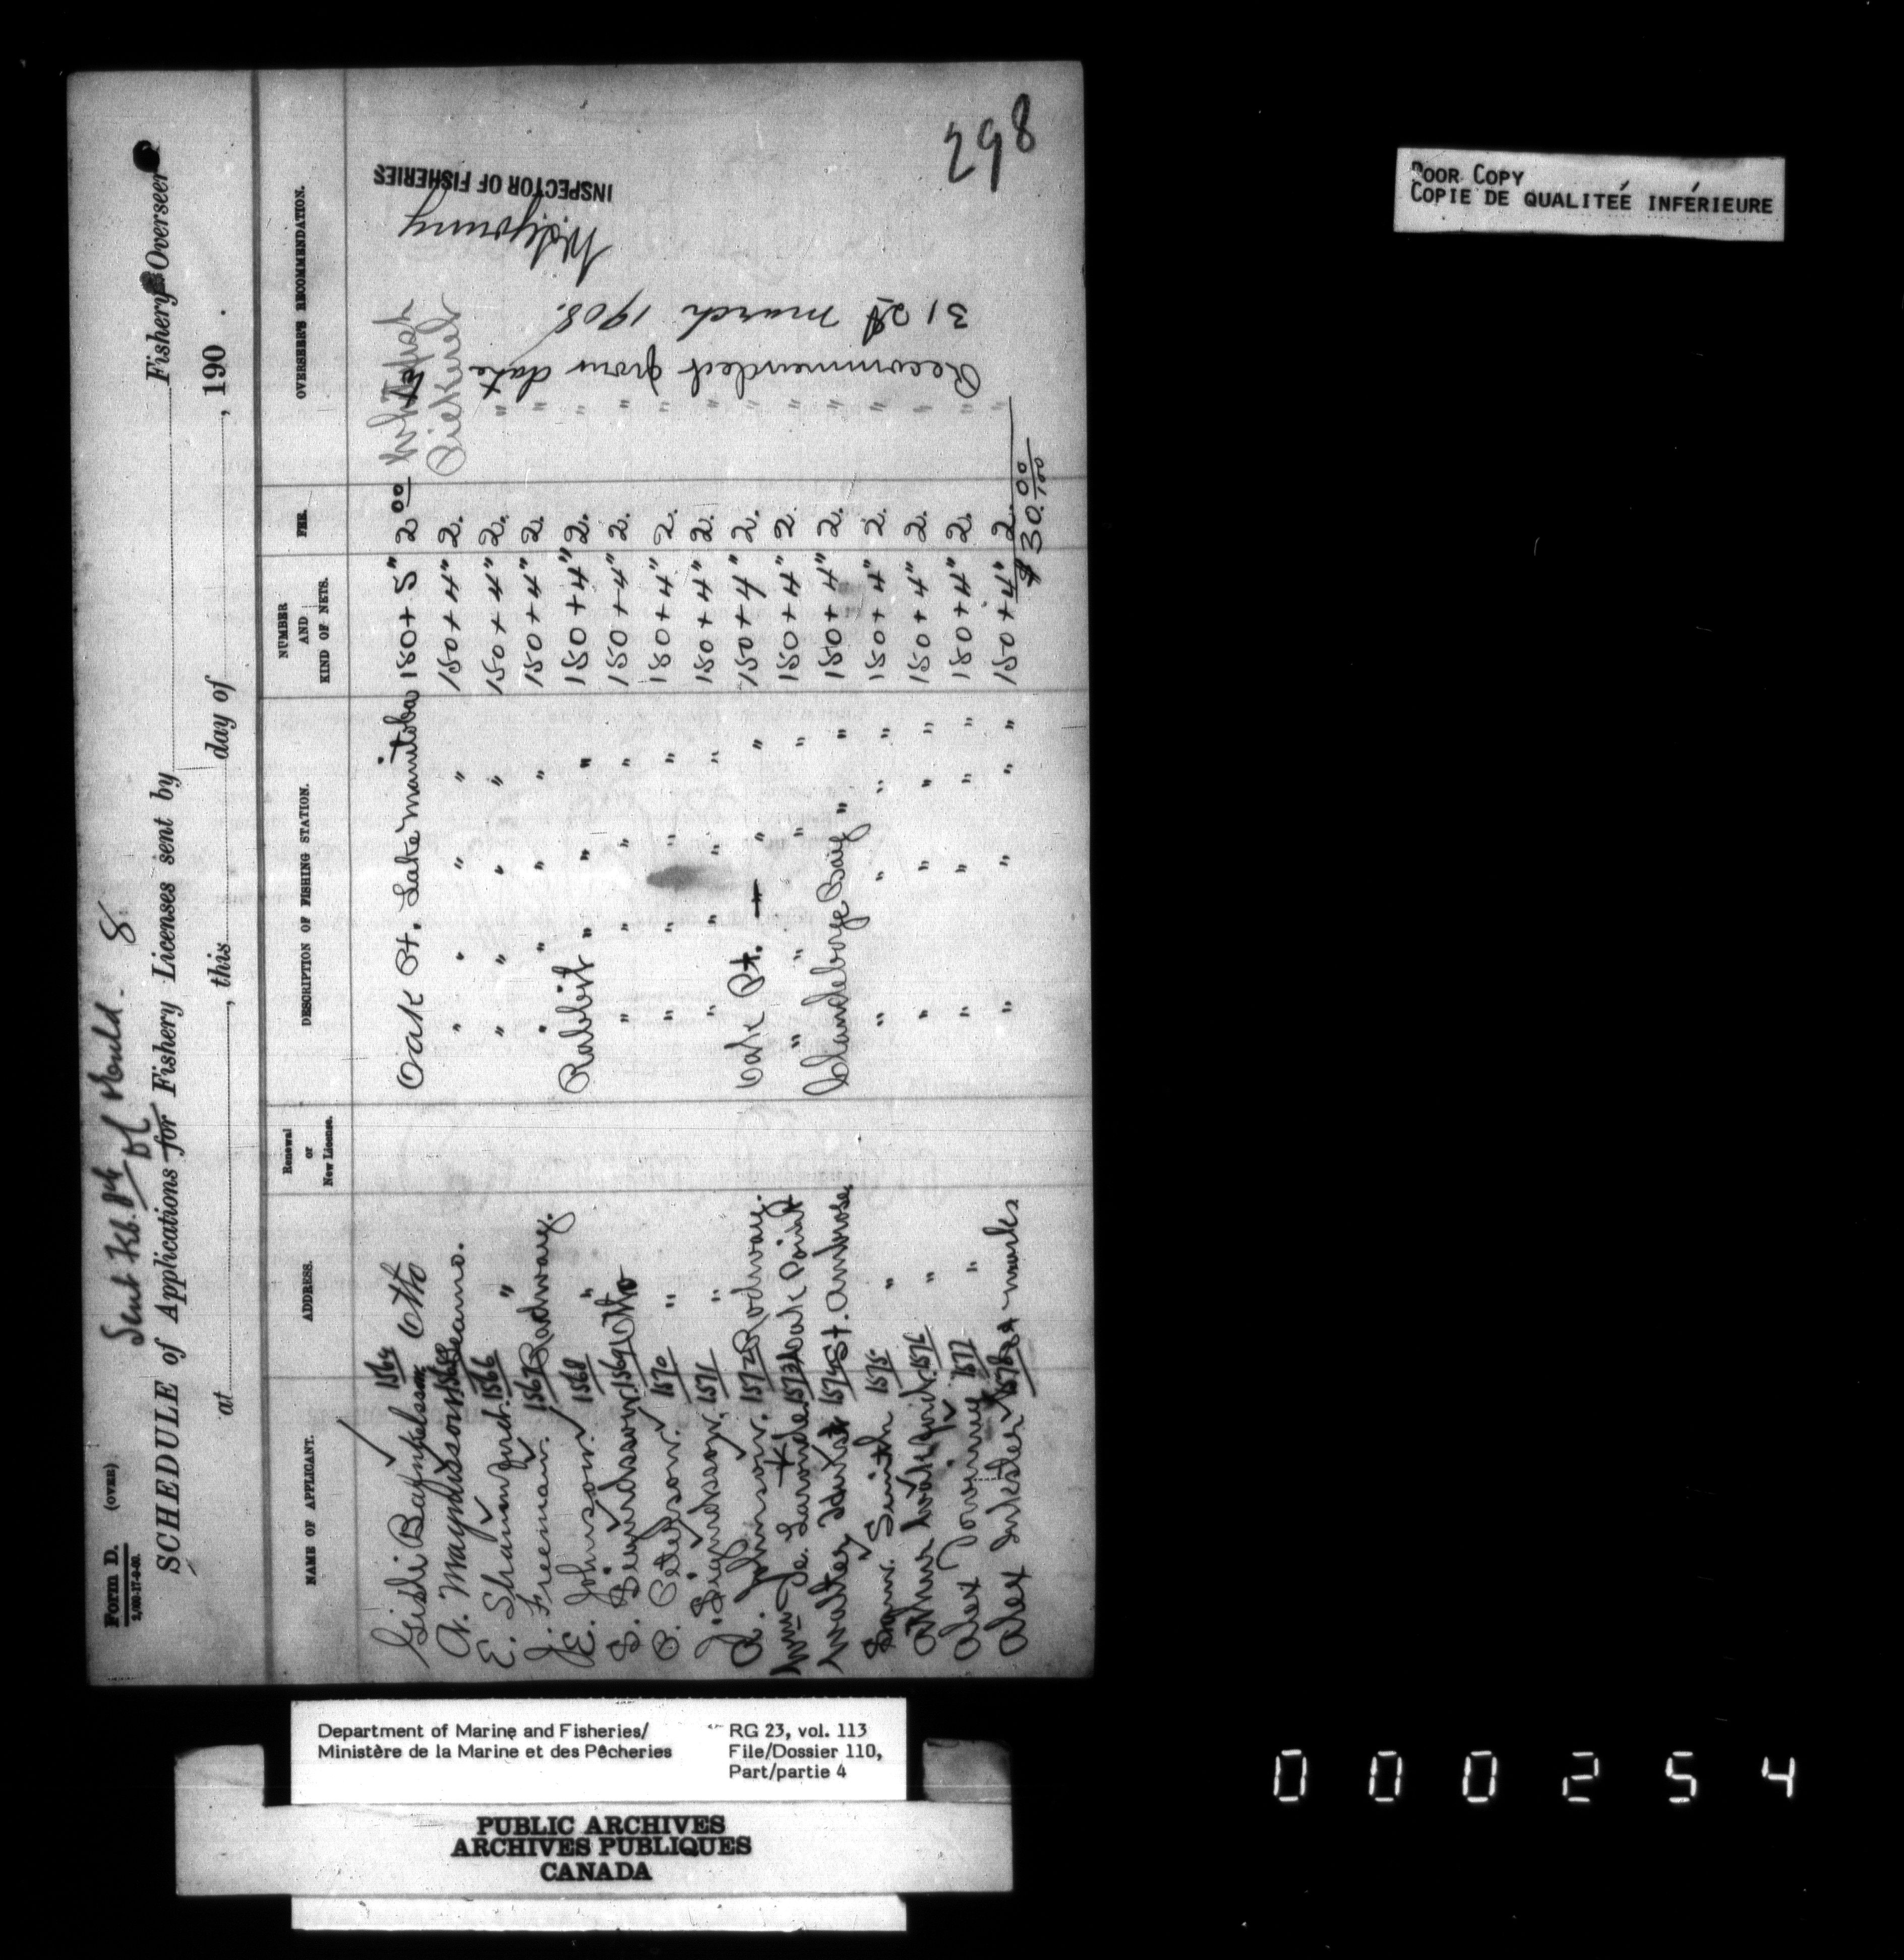 Sent Feb. 8th of Mould. 8.
Form D. (OVER)
2,00-17-9-00.
SCHEDULE of Applications for Fishery Licenses sent by Fishery Overseer
at , this day of , 190 .
NAME OF APPLICANT. ADDRESS. Renewal or New License. DESCRIPTION OF FISHING STATION. NUMBER AND KIND OF NETS. FEE. OVERSEER'S RECOMMENDATION.
1564 Otto Oak Pt. Lake Manitoba 150 + 5" 2 00 Whitefish
1565 " " " " 150 + 4" 2. Pickerel
E. 1566 " " " " " 150 + 4" 2. "
J. Freeman. 1567 Radway. " " " " 150 + 4" 2. "
E. Johnson. 1568 " Rabbit " " " 150 + 4" 2. "
S. 1569 Otto " " " " 150 + 4" 2. "
B. Peterson. 1570 " " " " " 150 + 4" 2. "
J. 1571 " " " " " 150 + 4" 2. "
A. Johnson. 1572 Rodway. Oak Pt. " " 150 + 4" 2. "
Wm De Laronde 1573 Oak Point " " " " 150 + 4" 2. "
Walter 1574 St. Ambrose, Clandeboye Bay " " 150 + 4" 2. "
Smith 1575 " " " " " 150 + 4" 2. "
1576 " " " " " 150 + 4" 2. "
Alex 1577 " " " " " 150 + 4" 2. "
Alex Inkster 1578 St marks " " " " 150 + 4" 2. "
$ 30.00/100
Recommended from date
31st march 1908.
INSPECTOR OF FISHERIES
298
POOR COPY
COPIE DE QUALITEÉ INFÉRIEURE
Department of Marine and Fisheries/
Ministère de la Marine et des Pêcheries
RG 23, vol. 113
File/Dossier 110,
Part/partie 4
PUBLIC ARCHIVES
ARCHIVES PUBLIQUES
CANADA
000254